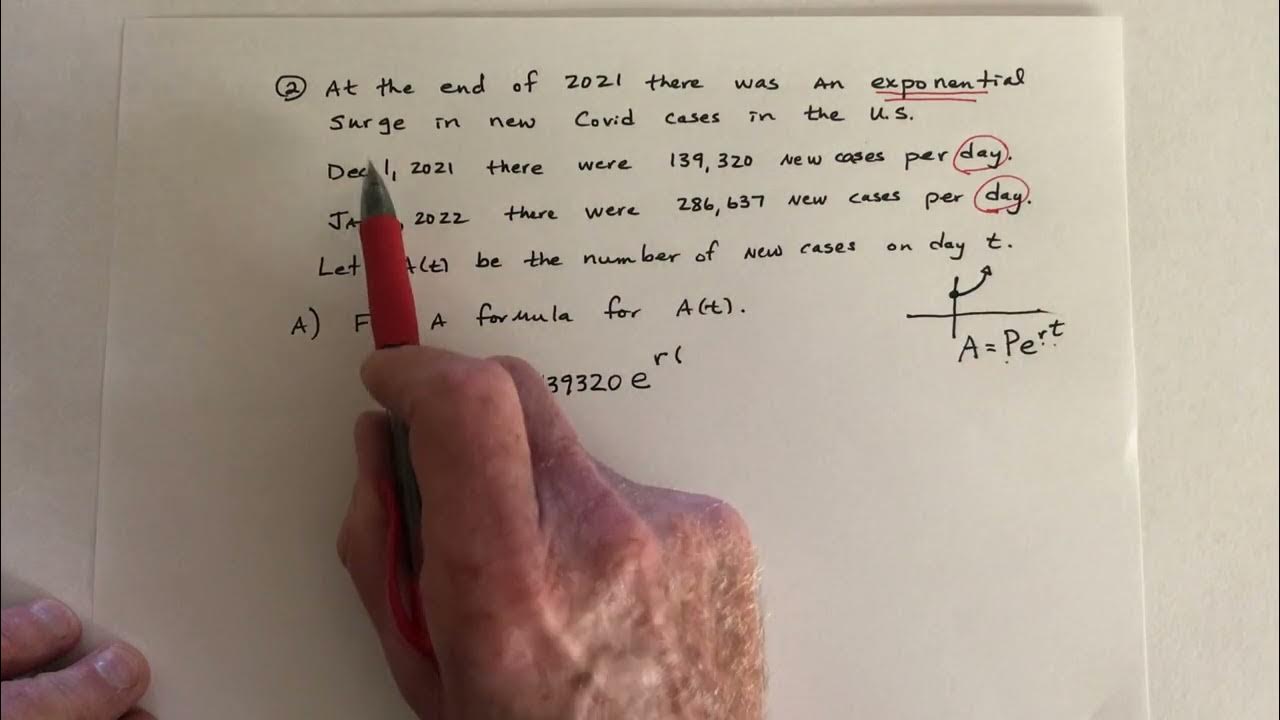 ② At the end of 2021 there was an exponential
surge in new Covid cases in the U.S.
Dec 1, 2021 there were 139,320 new cases per day.
2022 there were 286,637 new cases per day.
Let A(t) be the number of new cases on day t.
A) A formula for A(t).
A = Pe^rt
39320 e^r(